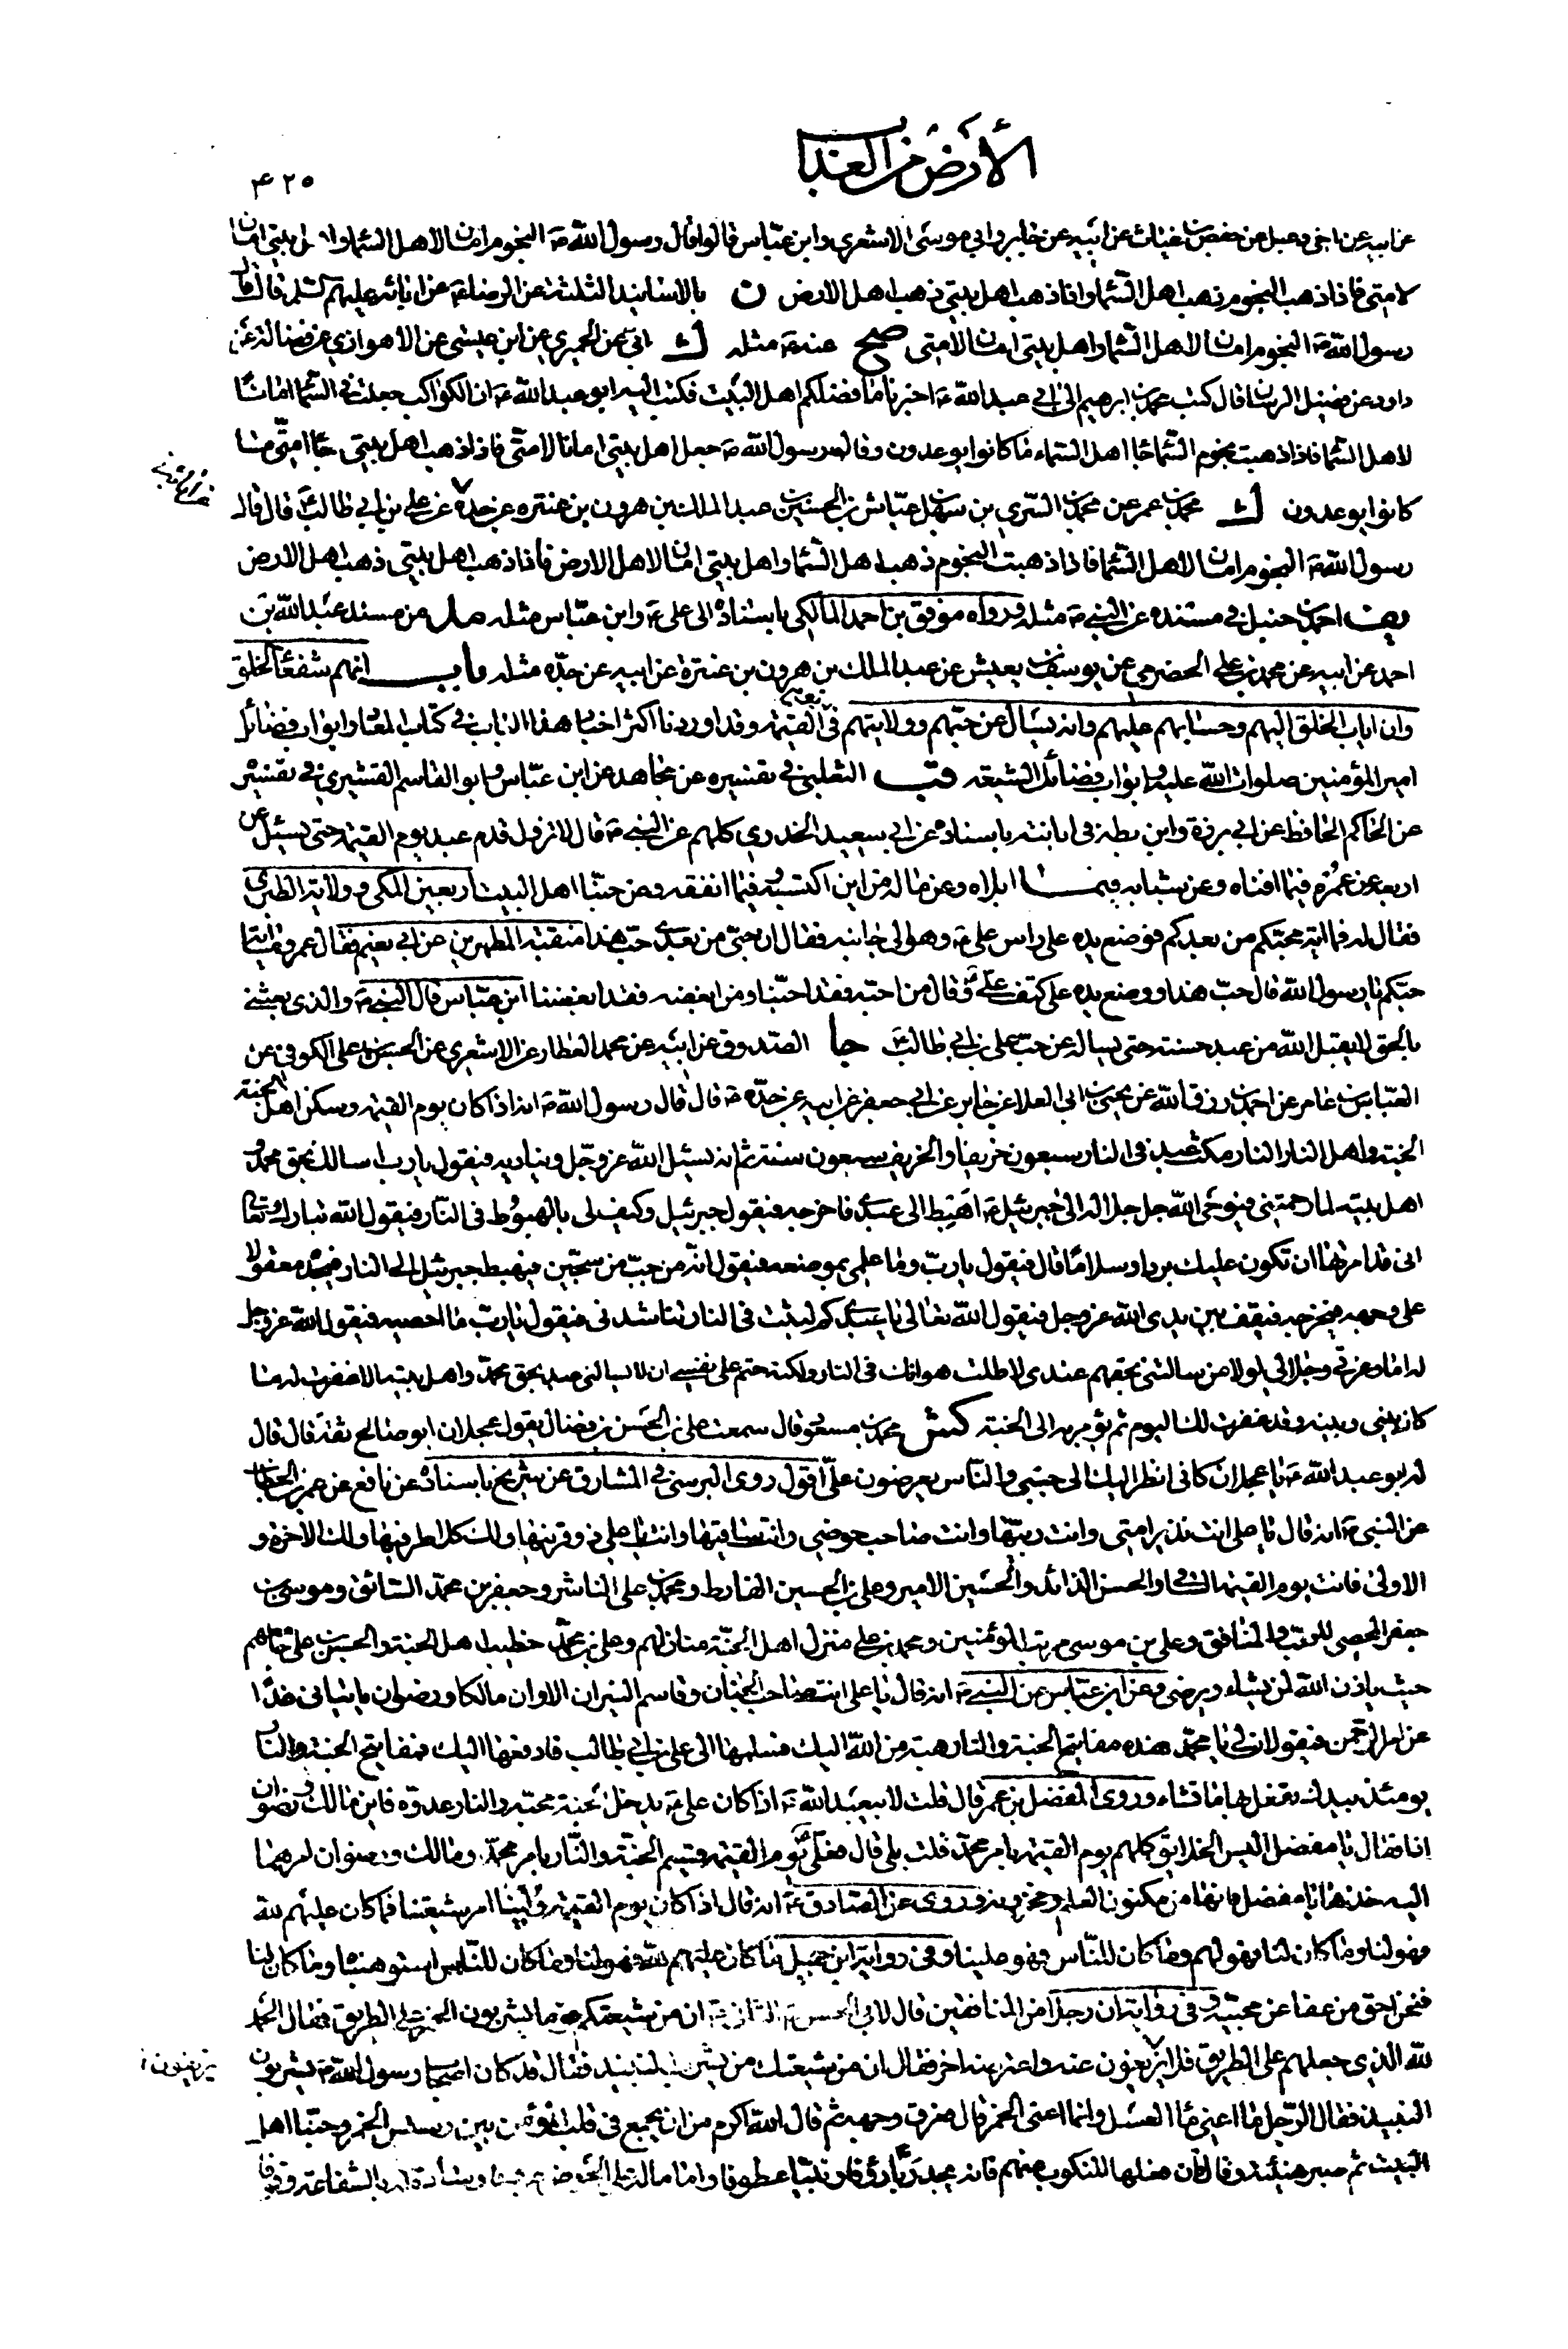 الأرض من العذاب
۴۲۵
عن ابيه عن اخى دعبل عن حفص بن غياث عن ابيه عن جابر وابى موسى الاشعرى وابن عباس قالوا قال رسول الله ص النجوم امان لاهل السماء واهل بيتى امان
لامتى فاذا ذهب النجوم ذهب اهل السماء واذا ذهب اهل بيتى ذهب اهل الارض ن بالاسانيد الثلثة عن الرضا ع عن ابائه عليهم السلم قال قال
رسول الله ص النجوم امان لاهل السماء واهل بيتى امان لامتى صح عنه ع مثله ك ابى عن الحميرى عن ابن عيسى عن الاهوازى عن فضالة عن
داود عن فضيل الرسان قال كتب محمد بن ابرهيم الى ابى عبد الله ع اخبرنا ما فضلكم اهل البيت فكتب اليه ابو عبد الله ع ان الكواكب جعلت فى السماء امانا
لاهل السماء فاذا ذهبت نجوم السماء جاء اهل السماء ما كانوا يوعدون وقال رسول الله ص جعل اهل بيتى امانا لامتى فاذا ذهب اهل بيتى جاء امتى ما
كانوا يوعدون ك محمد بن عمر عن محمد بن السرى بن سهل عن عباس بن الحسين عن عبد الملك بن هرون بن عنتره عن جده عن على بن ابى طالب ع قال قال
رسول الله ص النجوم امان لاهل السماء فاذا ذهبت النجوم ذهب اهل السماء واهل بيتى امان لاهل الارض فاذا ذهب اهل بيتى ذهب اهل الارض
يف احمد بن حنبل فى مسنده عن النبى ص مثله ورواه موفق بن احمد المالكى باسناده الى على ع وابن عباس مثله مد من مسند عبد الله بن
احمد عن ابيه عن محمد بن على الحضرمى عن يوسف بن يعيش عن عبد الملك بن هرون بن عنترة عن ابيه عن جده مثله باب انهم شفعاء الخلق
وان اياب الخلق اليهم وحسابهم عليهم وانه يسال عن حبهم وولايتهم فى يوم القيمة وقد اوردنا اكثر اخبار هذا الباب فى كتاب المعاد وابواب فضائل
امير المؤمنين صلوات الله عليه وابواب فضائل الشيعة قب الثعلبى فى تفسيره عن مجاهد عن ابن عباس وابو القاسم القشيرى فى تفسيره
عن الحاكم الحافظ عن ابى برزة وابن بطه فى ابانته باسناده عن ابى سعيد الخدرى كلهم عن النبى ص قال لا تزول قدم عبد يوم القيمة حتى يسئل عن
اربعة عن عمره فيما افناه وعن شبابه فيما ابلاه وعن ماله من اين اكتسبه وفيما انفقه وعن حبنا اهل البيت اربعين المكى وولاية الطبرى
فقال له فما اية محبتكم من بعدكم فوضع يده على راس على ع وهو الى جانبه فقال ان حبى من بعدى حب هذا منقبة المطهرين عن ابى نعيم فقال عمر وما اية
حبكم يا رسول الله قال حب هذا ووضع يده على كتف على ع وقال من احبه فقد احبنا ومن ابغضه فقد ابغضنا ابن عباس قال النبى ص والذى بعثنى
بالحق لا يقبل الله من عبد حسنة حتى يساله عن حب على بن ابى طالب ع جا الصدوق عن ابيه عن محمد العطار عن الاشعرى عن الحسن بن على الكوفى عن
العباس بن عامر عن احمد بن رزق الله عن يحيى بن ابى العلا عن جابر عن ابى جعفر عن ابيه عن جده ع قال قال رسول الله ص انه اذا كان يوم القيمة وسكن اهل الجنة
الجنة واهل النار النار مكث عبد فى النار سبعون خريفا والخريف سبعون سنة ثم انه يسئل الله عز وجل ويناديه فيقول يا رب اسالك بحق محمد و
اهل بيته لما رحمتنى فيوحى الله جل جلاله الى جبرئيل ع اهبط الى عبدى فاخرجه فيقول جبرئيل وكيف لى بالهبوط فى النار فيقول الله تبارك وتعالى
انى قد امرتها ان تكون عليك بردا وسلاما قال فيقول يا رب وما علمى بموضعه فيقول انه من جب من سجين فيهبط جبرئيل الى النار فيجده معقولا
على وجهه فيخرجه فيقف بين يدى الله عز وجل فيقول الله تعالى يا عبدى كم لبثت فى النار تناشدنى فيقول يا رب ما احصيه فيقول الله عز وجل
له اما وعزتى وجلالى لولا من سالتنى بحقهم عندى لاطلت هوانك فى النار ولكنه حتم على نفسى ان لا يسالنى عبد بحق محمد واهل بيته الا غفرت له ما
كان بينى وبينه وقد غفرت لك اليوم ثم يؤمر به الى الجنة كش محمد بن مسعود قال سمعت على بن الحسن بن فضال يقول عجلان ابو صالح ثقة قال قال
له ابو عبد الله ع يا عجلان كانى انظر اليك الى جنبى والناس يعرضون على اقول روى البرسى فى المشارق عن شريح باسناده عن نافع عن عمر بن الخطاب
عن النبى ص انه قال يا على انت نذير امتى وانت ربيها وانت صاحب حوضى وانت ساقيها وانت يا على ذو قرنيها ولك كلا طرفيها ولك الاخرة و
الاولى فانت يوم القيمة الساقى والحسن الذائد والحسين الامير وعلى بن الحسين الفارط ومحمد بن على الناشر وجعفر بن محمد السائق وموسى بن
جعفر المحصى للمحب والمنافق وعلى بن موسى مرتب المؤمنين ومحمد بن على منزل اهل الجنة منازلهم وعلى بن محمد خطيب اهل الجنة والحسن بن على جامعهم
حيث ياذن الله لمن يشاء ويرضى وعن ابن عباس عن النبى ص انه قال يا على انت صاحب الجنان وقاسم النيران الا وان مالكا ورضوان ياتيانى غدا
عن امر الرحمن فيقولان لى يا محمد هذه مفاتيح الجنة والنار هبة من الله اليك فسلمها الى على بن ابى طالب فادفعها اليك فمفاتيح الجنة والنار
يومئذ بيدك تفعل بها ما تشاء وروى المفضل بن عمر قال قلت لابى عبد الله ع اذا كان على ع يدخل الجنة محبه والنار عدوه فاين مالك ورضوان
اذا فقال يا مفضل اليس الخلايق كلهم يوم القيمة بامر محمد قلت بلى قال فعلى يوم القيمة قسيم الجنة والنار بامر محمد ومالك ورضوان امرهما
اليه خذها يا مفضل فانها من مكنون العلم ومخزونه وروى عن الصادق ع انه قال اذا كان يوم القيمة ولينا امر شيعتنا فما كان عليهم لله
فهو لنا وما كان لنا فهو لهم وما كان للناس فهو علينا وفى رواية ابن جميل ما كان عليهم لله فهو لنا وما كان للناس استوهبناه وما كان لنا
فنحن احق من عفا عن محبيه وفى رواية ان رجلا من المنافقين قال لابى الحسن الثانى ع ان من شيعتكم قوما يشربون الخمر على الطريق فقال الحمد
لله الذى جعلهم على الطريق فلا يزيغون عنه واعترضه اخر فقال ان من شيعتك من يشرب النبيذ فقال قد كان اصحاب رسول الله ص يشربون
النبيذ فقال الرجل ما اعنى ماء العسل وانما اعنى الخمر قال فعرق وجهه ثم قال الله اكرم من ان يجمع فى قلب المؤمن بين رسيس الخمر وحبنا اهل
البيت ثم صبر هنيئة وقال فان فعلها المنكوب منهم فانه يجد ربا رؤفا ونبيا عطوفا واماما له على الحوض وسادة له بالشفاعة وقوفا